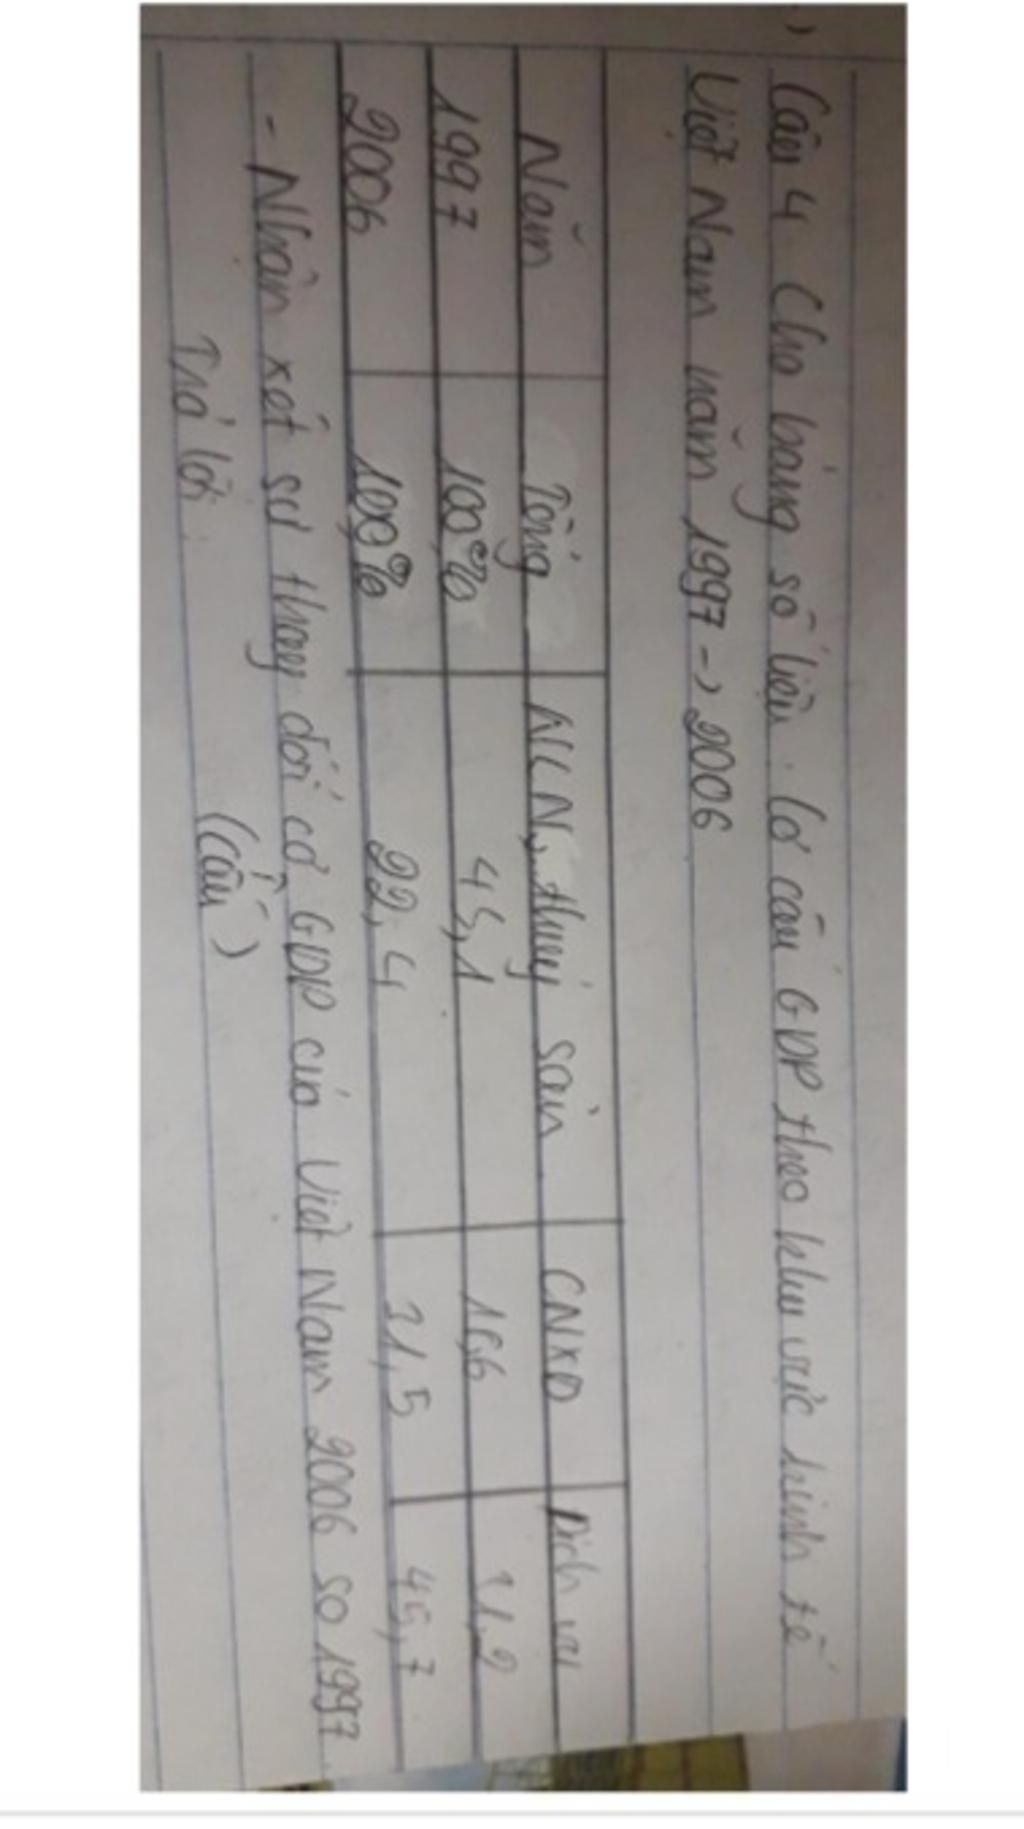 Câu 4 Cho bảng số liệu. Cơ cấu GDP theo khu vực kinh tế
Việt Nam năm 1997 -> 2006
Năm Tổng NLN, thuỷ sản CNXD Dịch vụ
1997 100% 45,1 16,6
2006 100% 22,4 31,5 45,7
- Nhận xét sự thay đổi cơ GDP của Việt Nam 2006 so 1997.
(cấu)
Trả lời